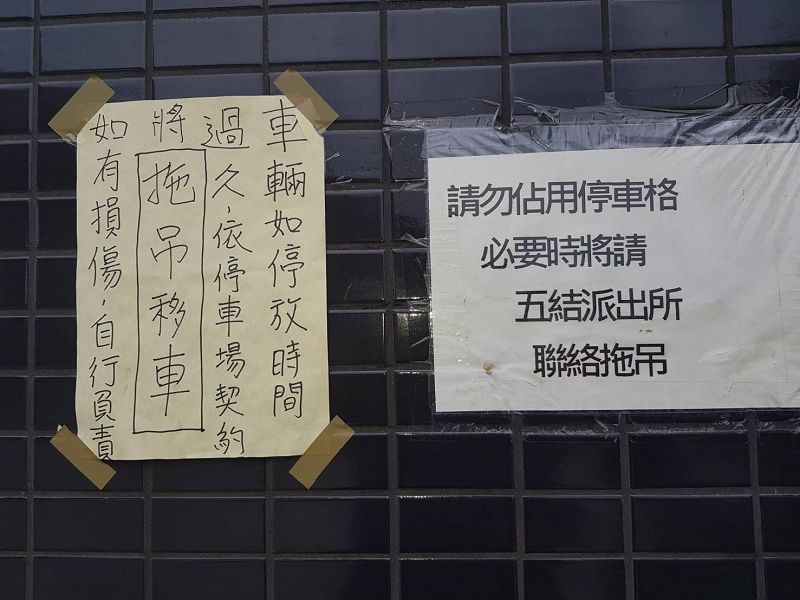 車輛如停放時間
過久,依停車場契約
將拖吊移車
如有損傷,自行負責
請勿佔用停車格
必要時將請
五結派出所
聯絡拖吊